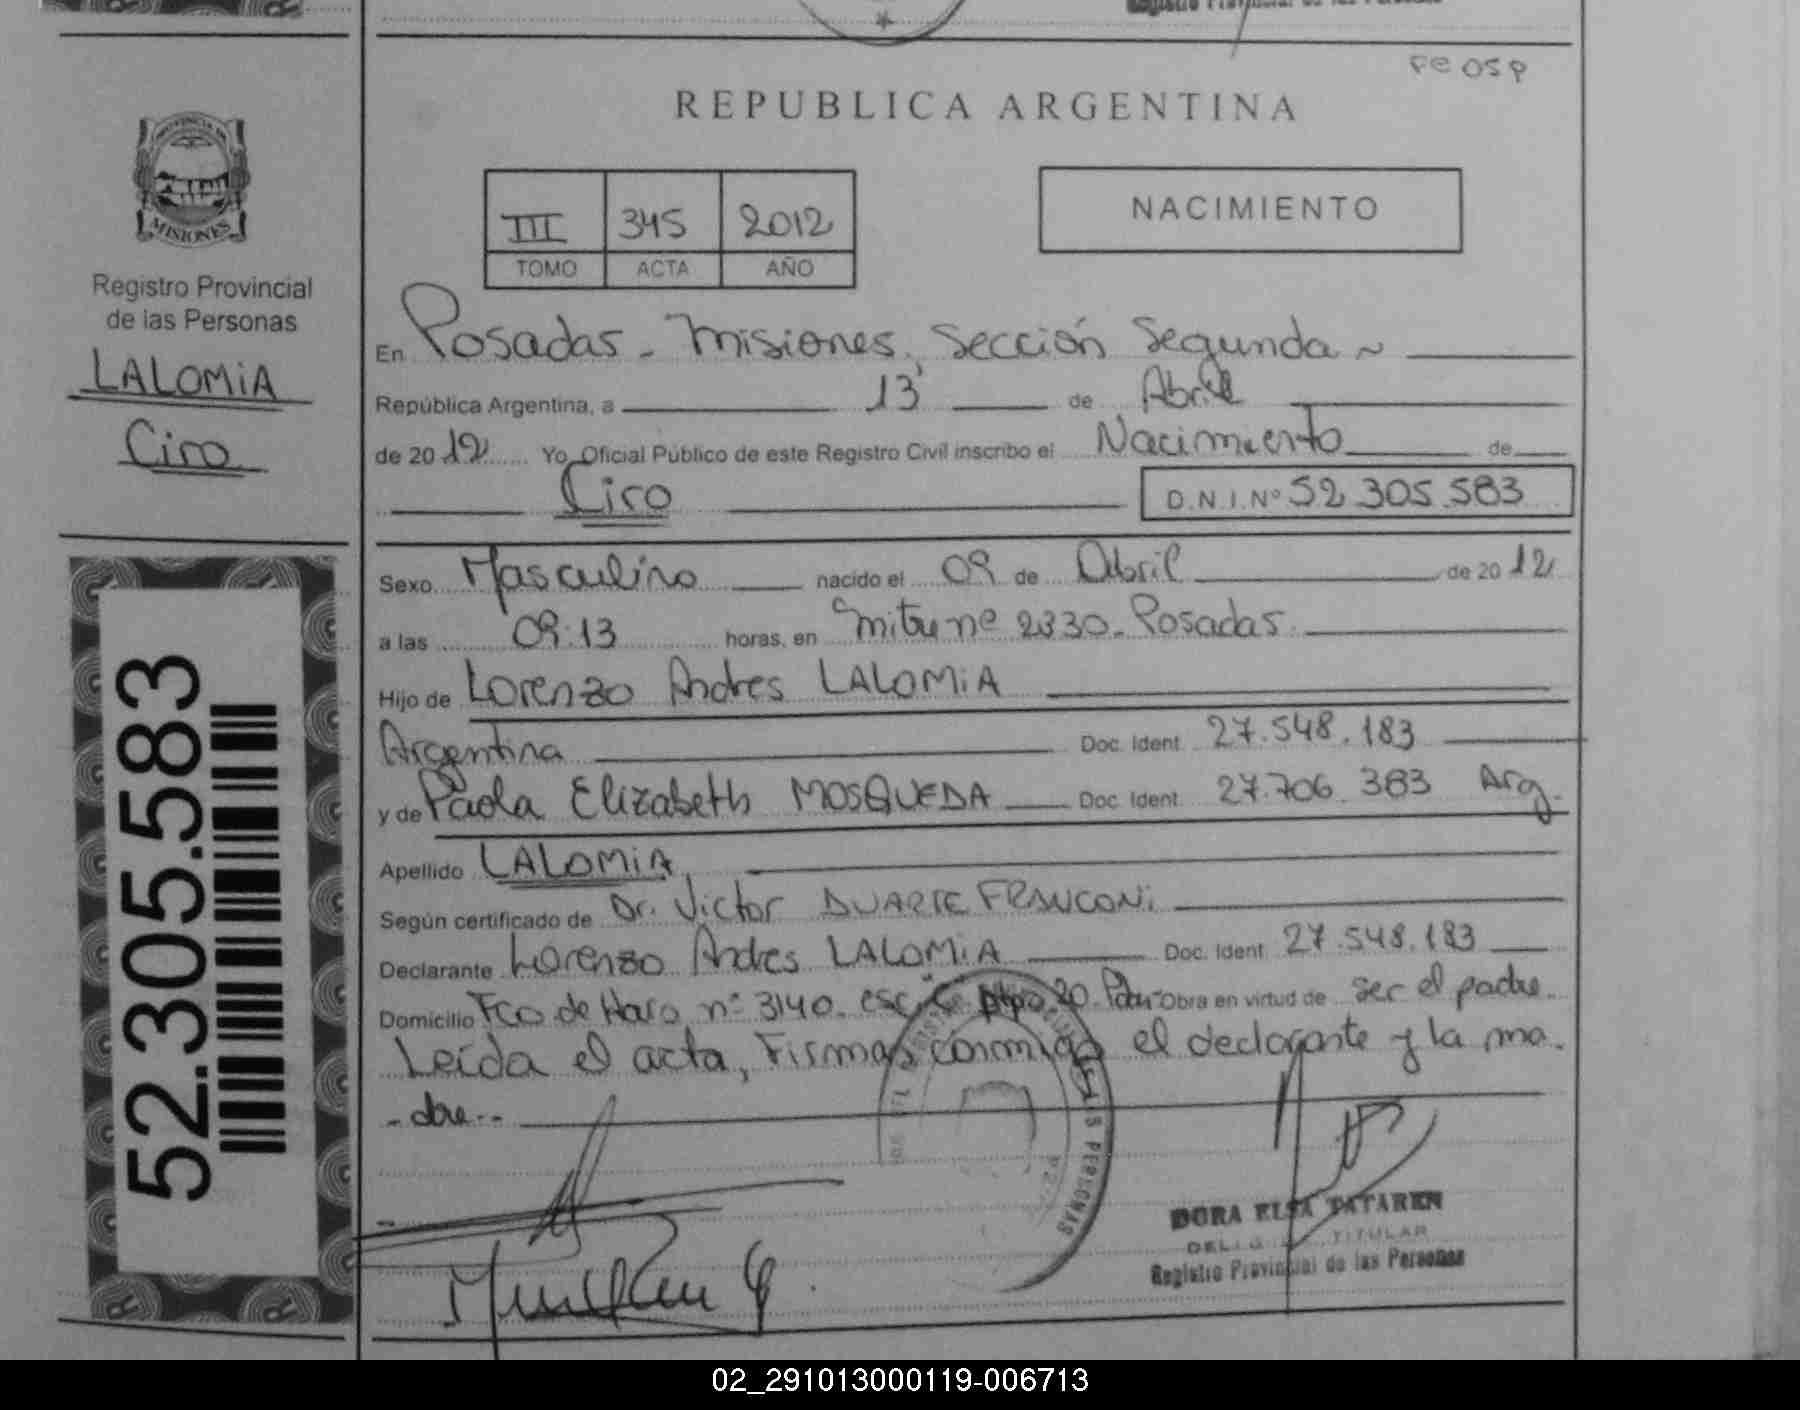 Registro Provincial de las Personas
Fe OSP
REPUBLICA ARGENTINA
PROVINCIA DE
MISIONES
Registro Provincial
de las Personas
LALOMIA
Ciro
52.305.583
III 345 2012
TOMO ACTA AÑO
NACIMIENTO
En Posadas - Misiones, Sección Segunda ~
República Argentina, a 13 de Abril
de 20 12 Yo Oficial Público de este Registro Civil inscribo el Nacimiento de
Ciro D.N.I.Nº 52.305.583
Sexo Masculino nacido el 09 de Abril de 20 12
a las 09:13 horas, en Mitre nº 2330. Posadas.
Hijo de Lorenzo Andres LALOMIA
Argentina Doc. Ident. 27.548.183
y de Paola Elizabeth MOSQUEDA Doc. Ident. 27.706.383 Arg.
Apellido LALOMIA
Según certificado de Dr. Victor DUARTE FRANCONI
Declarante Lorenzo Andres LALOMIA Doc. Ident. 27.548.183
Domicilio Fco de Haro nº 3140. esc. C dpto 20. Obra en virtud de ser el padre.
Leída el acta, Firman conmigo el declarante y la ma-
-dre--
DORA ELSA TATAREN
TITULAR
Registro Provincial de las Personas
02_291013000119-006713